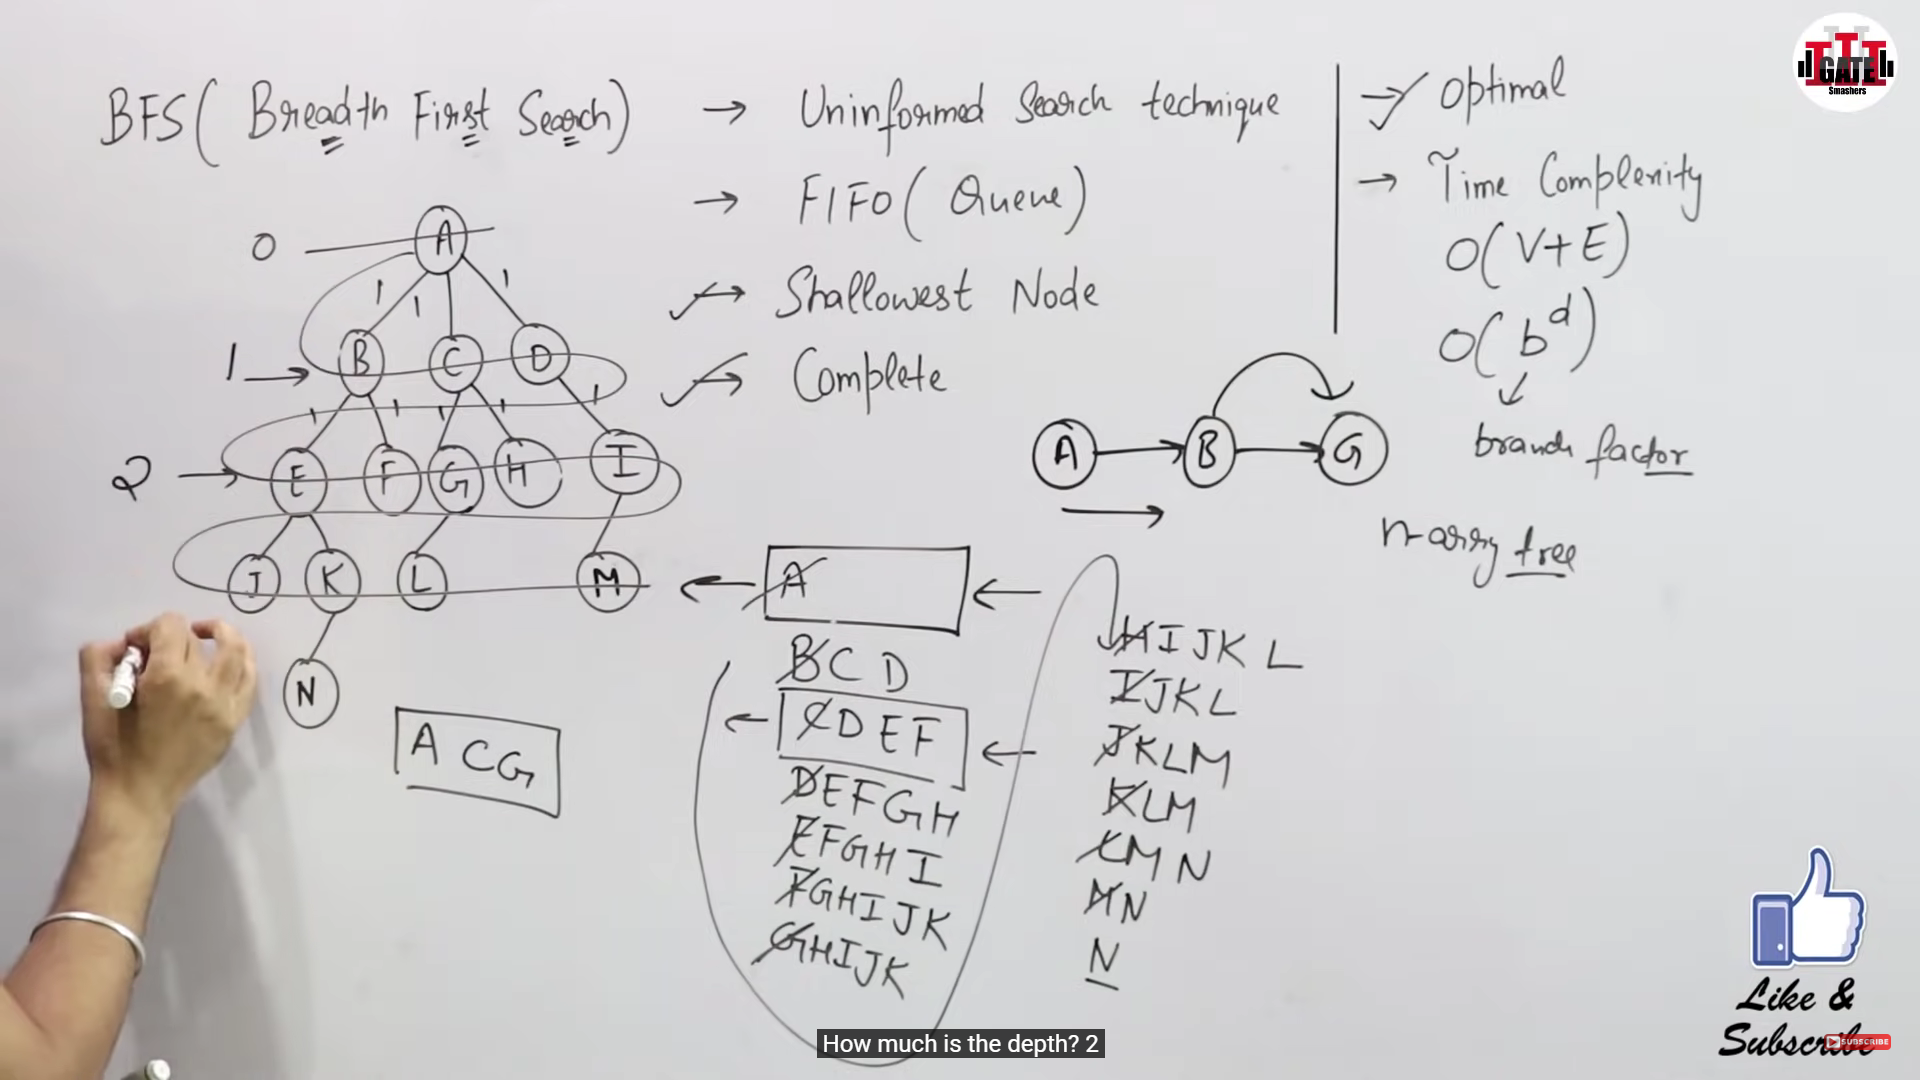 BFS( Breadth First Search) → Uninformed Search technique
→ FIFO( Queue)
→ Shallowest Node
→ Complete
→ Optimal
→ Time Complexity
O( V+E)
O( b^d)
branch factor
n-arry tree
GATE
Smashers
0
A
1 1 1
1 → B C D
1 1 1 1 1
2 → E F G H I
J K L M
N
A → B → G
A C G
A
B C D
C D E F
D E F G H
E F G H I
F G H I J K
G H I J K
H I J K L
I J K L
J K L M
K L M
L M N
M N
N
Like &
Subscribe
SUBSCRIBE
How much is the depth? 2